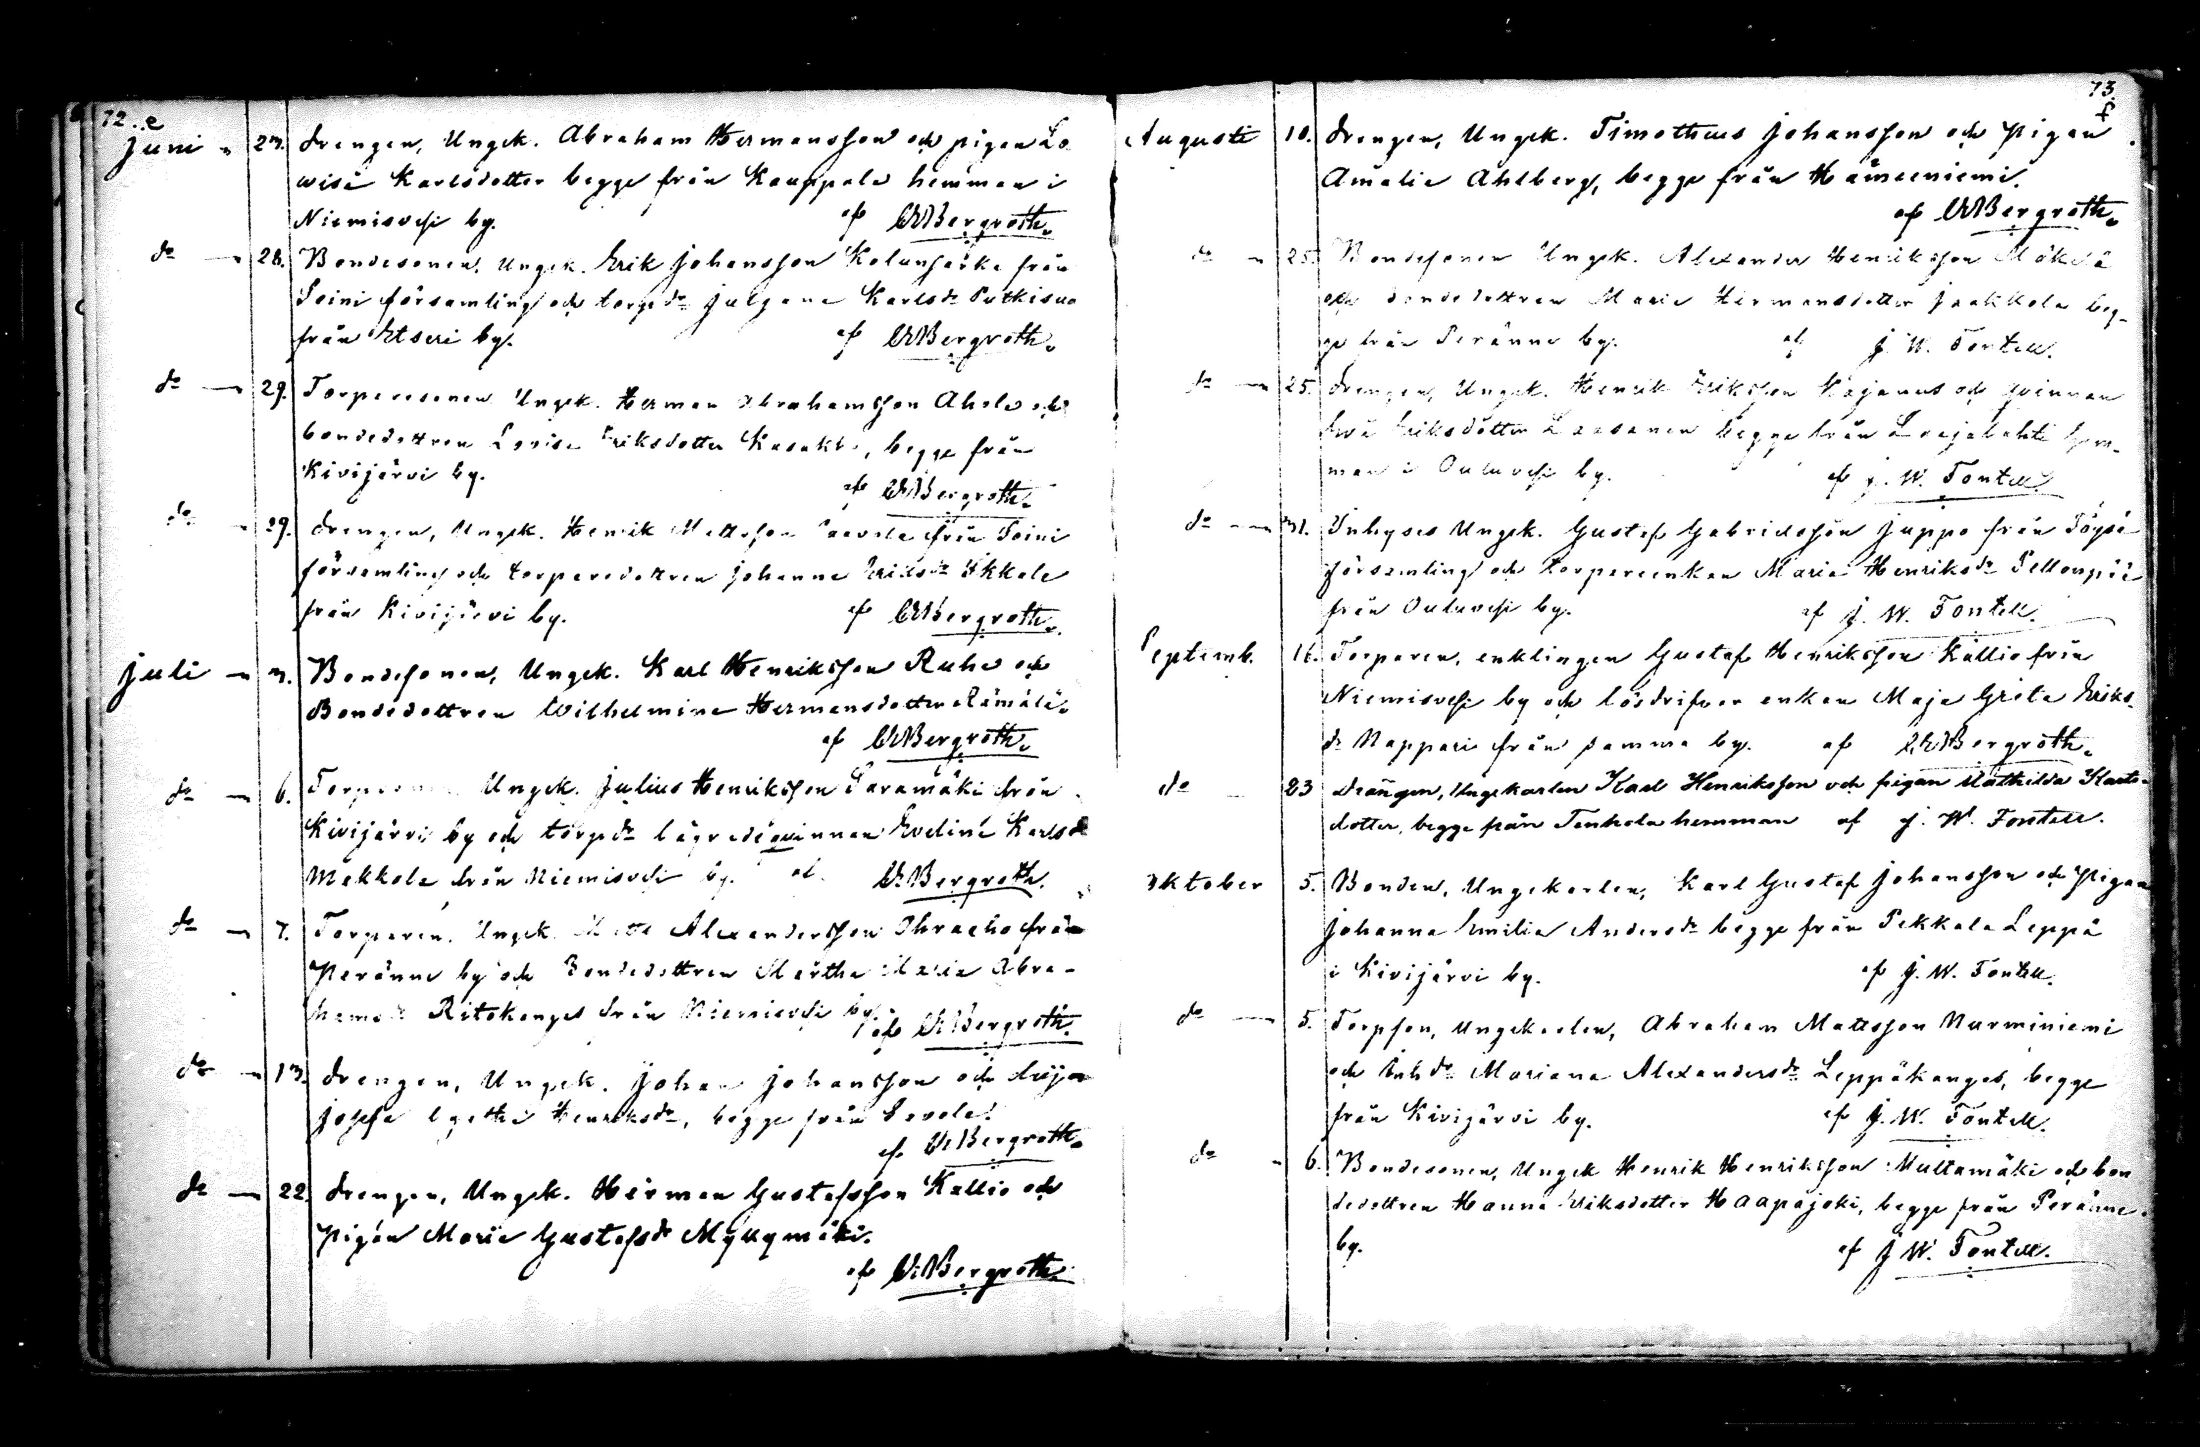 72. e
Juni 27. Drengen, Ungk. Abraham Hermansson och pigan Lo
wisa Karlsdotter begge från Kauppala hemman i
Niemisvesi by. af CWBergroth.
do 28. Bondesonen, Ungk. Erik Johansson Kolunsarka från
Soini församling och torpdr Julgana Karlsdr Putkisuo
från Etseri by. af CWBergroth.
do 29. Torparesonen Ungk. Herman Abrahamsson Ahola och
bondedottren Lovisa Eriksdotter, begge från
Kivijärvi by. af CWBergroth.
do 29. Drengen, Ungk. Henrik Mattsson från Soini
församling och torparedottren Johanna Eriksdr Ukkola
från Kivijärvi by. af CWBergroth.
Juli 3. Bondesonen, Ungk. Karl Henriksson Ruha och
Bondedottren Wilhelmina Hermansdotter Rämälä.
af CWBergroth.
do 6. Ungk. Julius Henriksson Saramäki från
Kivijärvi by och torpdr lägrade qvinnan Evelina Karlsdr
Makkola från Niemisvesi by. af CWBergroth.
do 7. Torparen, Ungk. Matts Alexandersson Ohraaho från
Peränne by och Bondedottren Martha Maria Abra-
hamsdr Ritokangas från Niemisvesi by. af CWBergroth.
do 13. Drengen, Ungk. Johan Johansson och
Josefa Agatha Henriksdr, begge från
af CWBergroth.
do 22. Drengen, Ungk. Herman Gustafsson Kallio och
Pigan Maria Gustafsdr Myllymäki.
af CWBergroth.
73.
f
Augusti 10. Drengen, Ungk. Timotheus Johansson och Pigan
Amalia Ahlberg, begge från Hämeeniemi.
af CWBergroth.
do 25. Bondesonen Ungk. Alexander Henriksson Mäkelä
och bondedottren Maria Hermansdotter Jaakkola beg-
ge från Peränne by. af J. W. Fontell.
do 25. Drengen, Ungk. Henrik Eriksson Kajanus och qvinnan
Eva Eriksdotter Laasanen begge från Laajalahti hem-
man i Ouluvesi by. af J. W. Fontell.
do 31. Inhyses Ungk. Gustaf Gabrielsson Juppo från Töysä
församling och torpareenkan Maria Henriksdr Pellonpää
från Ouluvesi by. af J. W. Fontell.
Septemb. 16. Torparen, enklingen Gustaf Henriksson Kallio från
Niemisvesi by och lösdrifver enkan Maja Greta Eriks
dr Nappari från samma by. af CWBergroth.
do 23 Drängen, Ungkarlen Karl Henriksson och pigan Mathilda Karls-
dotter, begge från Tenhola hemman af J. W. Fontell.
Oktober 5. Bonden, Ungekarlen, Karl Gustaf Johansson och Pigan
Johanna Emilia Andersdr begge från Pekkala Leppä
i Kivijärvi by. af J. W. Fontell.
do 5. Torpson, Ungekarlen, Abraham Mattsson Nurminiemi
och Inhdr Mariana Alexandersdr Leppäkangas, begge
från Kivijärvi by. af J. W. Fontell.
do 6. Bondesonen, Ungk Henrik Henriksson Multamäki och bon
dedottren Hanna Eriksdotter Haapajoki, begge från Peränne
by. af J W. Fontell.